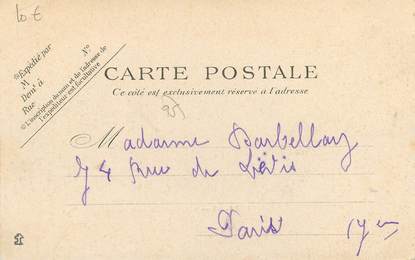 10 €
Expédié par
M
Demt à
Rue
N°
L'inscription du nom et de l'adresse de
l'expéditeur est facultative
CARTE POSTALE
Ce côté est exclusivement réservé à l'adresse
Madame Barbellay
74 Rue de Lévis
Paris 17em